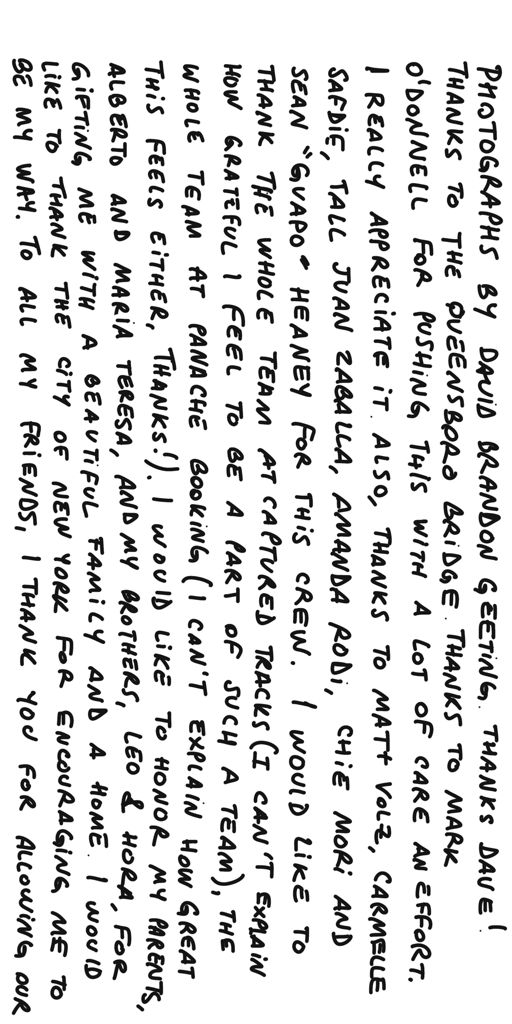 PHOTOGRAPHS BY DAVID BRANDON GEETING. THANKS DAVE!
THANKS TO THE QUEENSBORO BRIDGE. THANKS TO MARK
O'DONNELL FOR PUSHING THIS WITH A LOT OF CARE AN EFFORT.
I REALLY APPRECIATE IT. ALSO, THANKS TO MATT VOLZ, CARMELLE
SAFDIE, TALL JUAN ZABALLA, AMANDA RODI, CHIE MORI AND
SEAN "GUAPO" HEANEY FOR THIS CREW. I WOULD LIKE TO
THANK THE WHOLE TEAM AT CAPTURED TRACKS (I CAN'T EXPLAIN
HOW GRATEFUL I FEEL TO BE A PART OF SUCH A TEAM), THE
WHOLE TEAM AT PANACHE BOOKING (I CAN'T EXPLAIN HOW GREAT
THIS FEELS EITHER, THANKS!). I WOULD LIKE TO HONOR MY PARENTS,
ALBERTO AND MARIA TERESA, AND MY BROTHERS, LEO & HORA, FOR
GIFTING ME WITH A BEAUTIFUL FAMILY AND A HOME. I WOULD
LIKE TO THANK THE CITY OF NEW YORK FOR ENCOURAGING ME TO
BE MY WAY. TO ALL MY FRIENDS, I THANK YOU FOR ALLOWING OUR